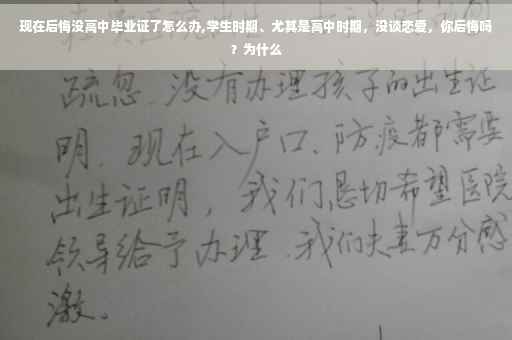 现在后悔没高中毕业证了怎么办,学生时期、尤其是高中时期，没谈恋爱，你后悔吗
？为什么
疏忽．没有办理孩子的出生证
明．现在入户口、防疫都需要
出生证明，我们恳切希望医院
领导给予办理．我们夫妻万分感
激。